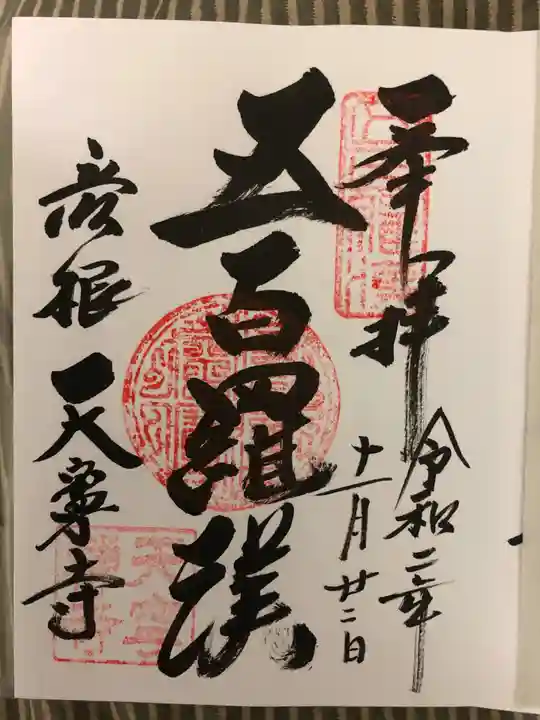 奉拝
令和二年
十一月廿二日
五百羅漢
彦根 天寧寺